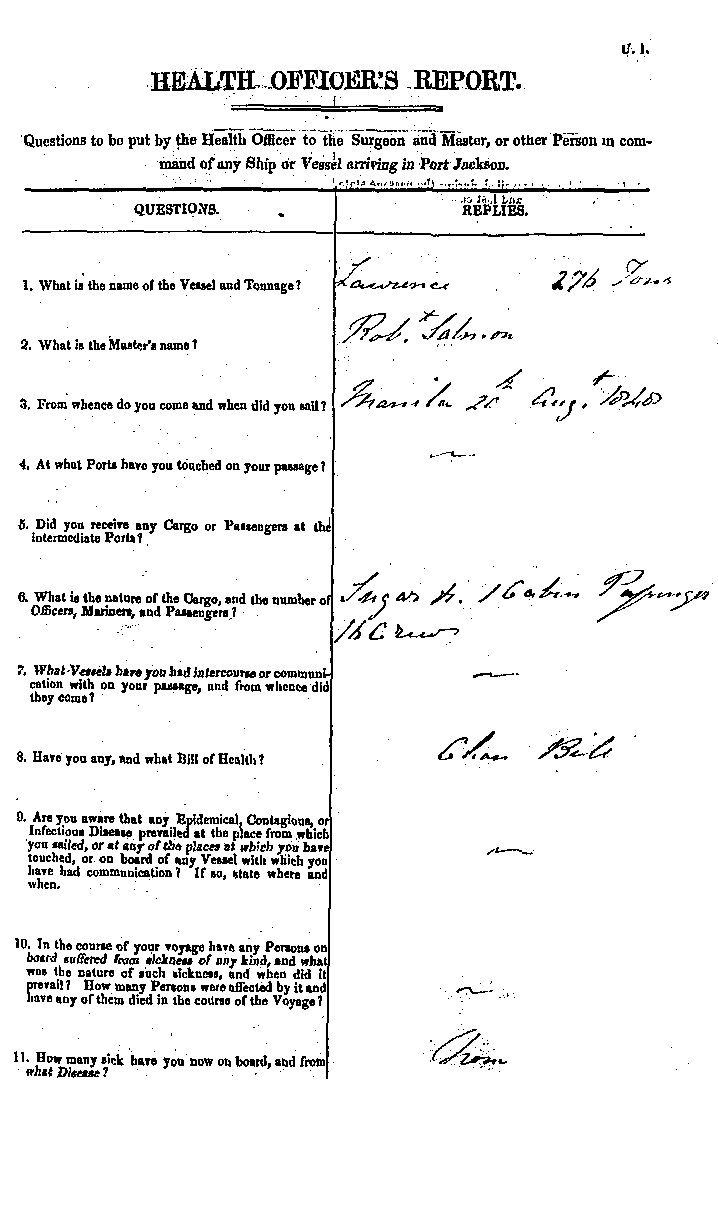 U. 1.
HEALTH OFFICER'S REPORT.
Questions to be put by the Health Officer to the Surgeon and Master, or other Person in com-
mand of any Ship or Vessel arriving in Port Jackson.
QUESTIONS.
REPLIES.
1. What is the name of the Vessel and Tonnage?
Lawrence 276 Tons
2. What is the Master's name?
Robt. Salmon
3. From whence do you come and when did you sail?
Manila 20th Augt. 1840
4. At what Ports have you touched on your passage?
~
5. Did you receive any Cargo or Passengers at the
intermediate Ports?
6. What is the nature of the Cargo, and the number of
Officers, Mariners, and Passengers?
Sugar &. 1 Cabin Passenger
16 Crew
7. What Vessels have you had intercourse or communi-
cation with on your passage, and from whence did
they come?
~
8. Have you any, and what Bill of Health?
Clean Bill
9. Are you aware that any Epidemical, Contagious, or
Infectious Disease prevailed at the place from which
you sailed, or at any of the places at which you have
touched, or on board of any Vessel with which you
have had communication? If so, state where and
when.
~
10. In the course of your voyage have any Persons on
board suffered from sickness of any kind, and what
was the nature of such sickness, and when did it
prevail? How many Persons were affected by it and
have any of them died in the course of the Voyage?
~
11. How many sick have you now on board, and from
what Disease?
None